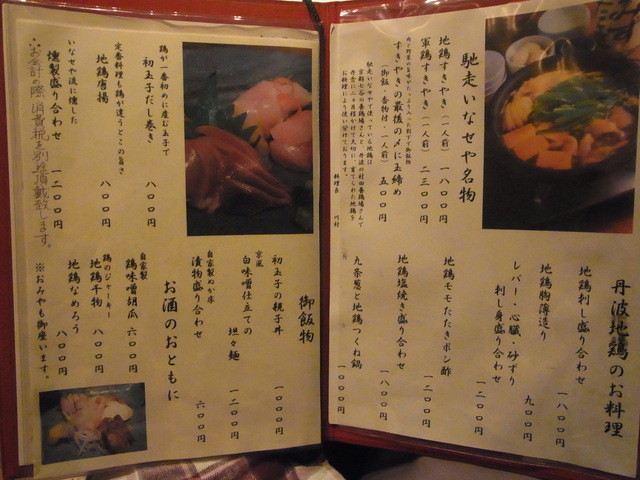 馳走いなせや名物
地鶏すきやき(一人前) 一八〇〇円
軍鶏すきやき(一人前) 二三〇〇円
すきやきの最後の〆に玉締め
(御飯・香物付・一人前) 五〇〇円
馳走いなせやで使っている地鶏は
お料理により使い分けております。
料理長 川村
丹波地鶏のお料理
地鶏刺し盛り合わせ 一八〇〇円
地鶏胸薄造り 九〇〇円
レバー・心臓・砂ずり
刺し身盛り合わせ 一二〇〇円
地鶏モモたたきポン酢 一二〇〇円
地鶏塩焼き盛り合わせ 一八〇〇円
九条葱と地鶏つくね鍋 一〇〇〇円
鶏が一番初めに産む玉子で
初玉子だし巻き 八〇〇円
定番料理も鶏が違うとこの旨さ
地鶏唐揚 八〇〇円
いなせや流に燻した
燻製盛り合わせ 一二〇〇円
∴お会計の際、消費税を別途頂戴致します。
御飯物
初玉子の親子丼 一〇〇〇円
京風
白味噌仕立ての坦々麺 一二〇〇円
自家製ぬか床
漬物盛り合わせ 六〇〇円
お酒のおともに
自家製
鶏味噌胡瓜 六〇〇円
鶏のジャーキー
地鶏干物 八〇〇円
地鶏なめろう 八〇〇円
※おみやも御座います。